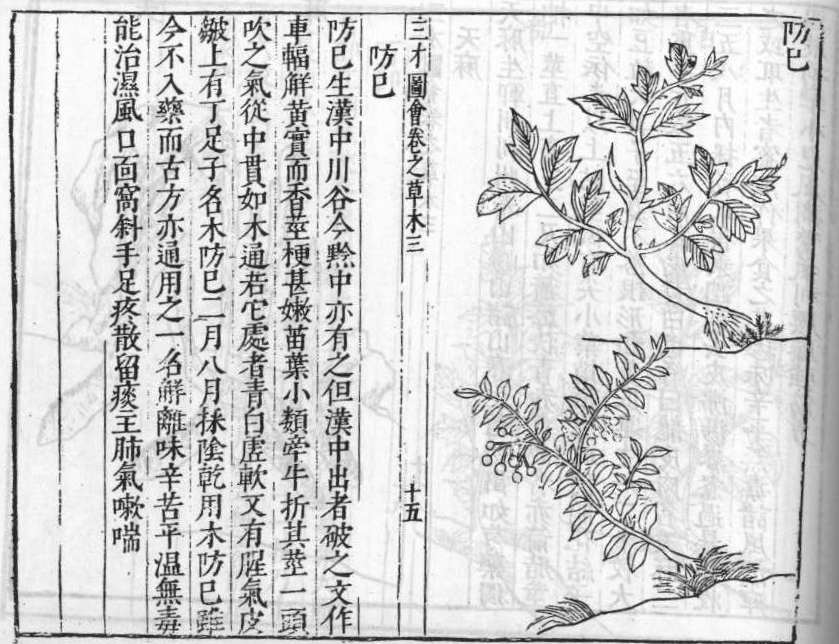 防巳
三才圖會卷之草木三
十五
防巳
防巳生漢中川谷今黔中亦有之但漢中出者破之文作
車輻解黃實而香莖梗甚嫩苗葉小類牽牛折其莖一頭
吹之氣從中貫如木通若它處者青白虛軟又有腥氣皮
皺上有丁足子名木防巳二月八月採陰乾用木防巳雖
今不入藥而古方亦通用之一名解離味辛苦平溫無毒
能治濕風口面窩斜手足疼散留痰主肺氣嗽喘